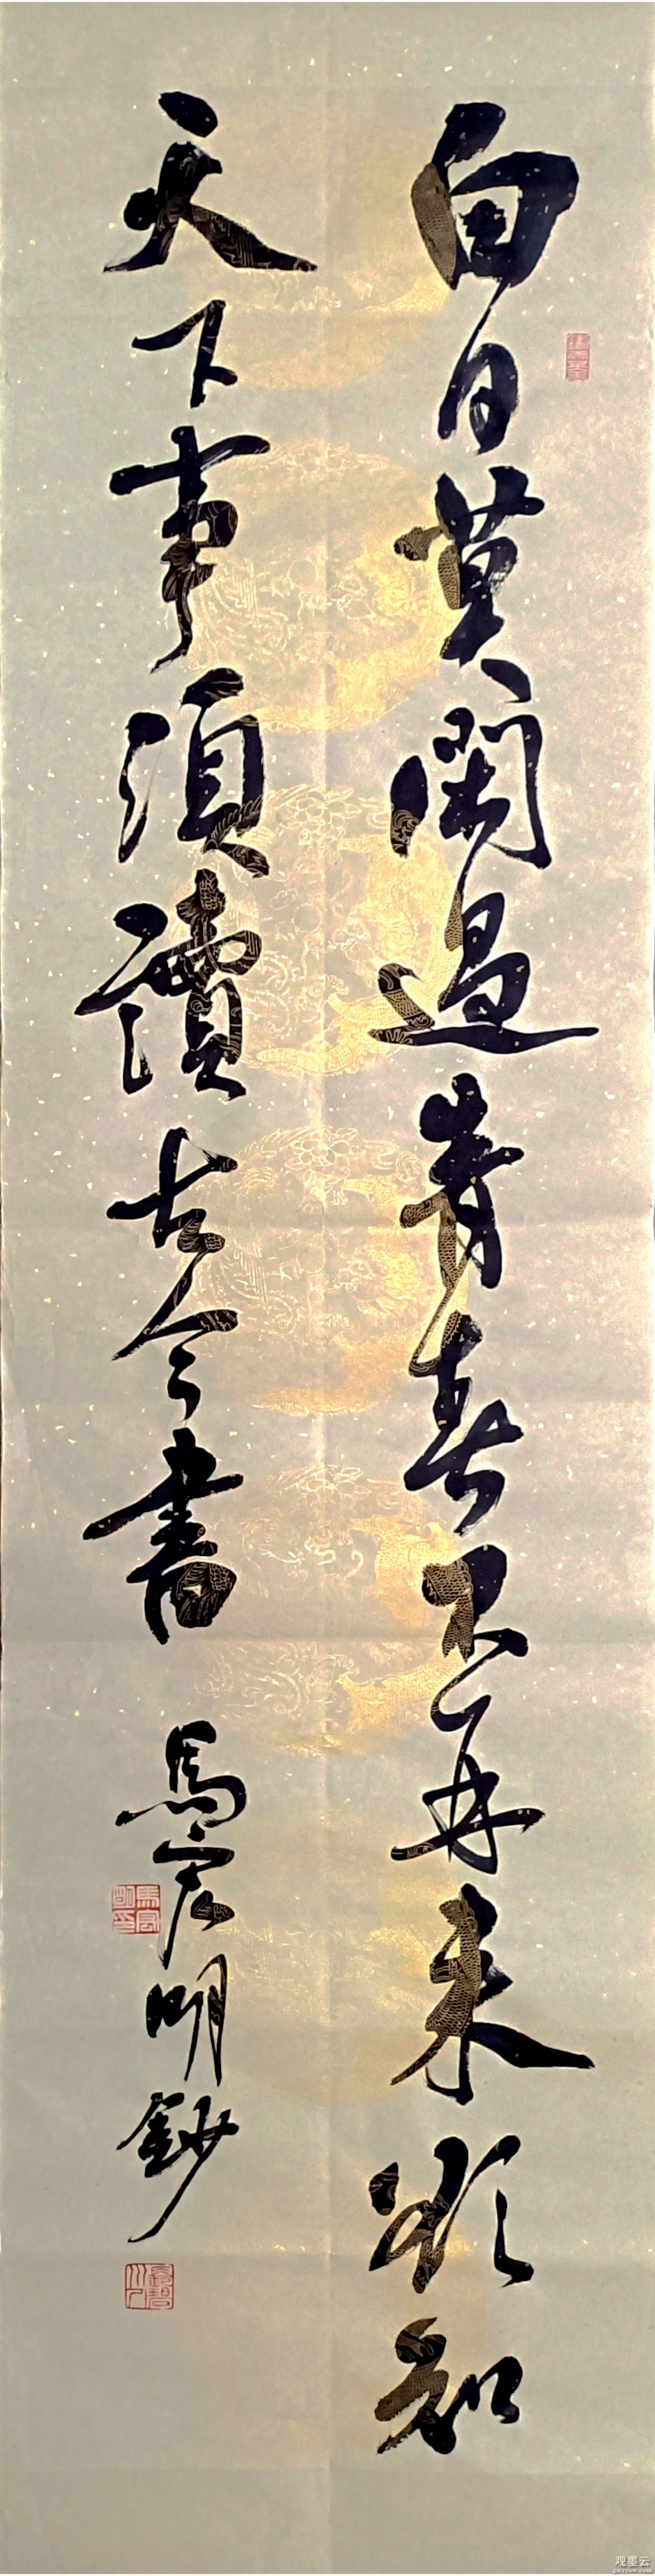 白日莫閑過青春不再来欲知
天下事須讀古今書
馬宏明鈔
馬宏明印
观墨云